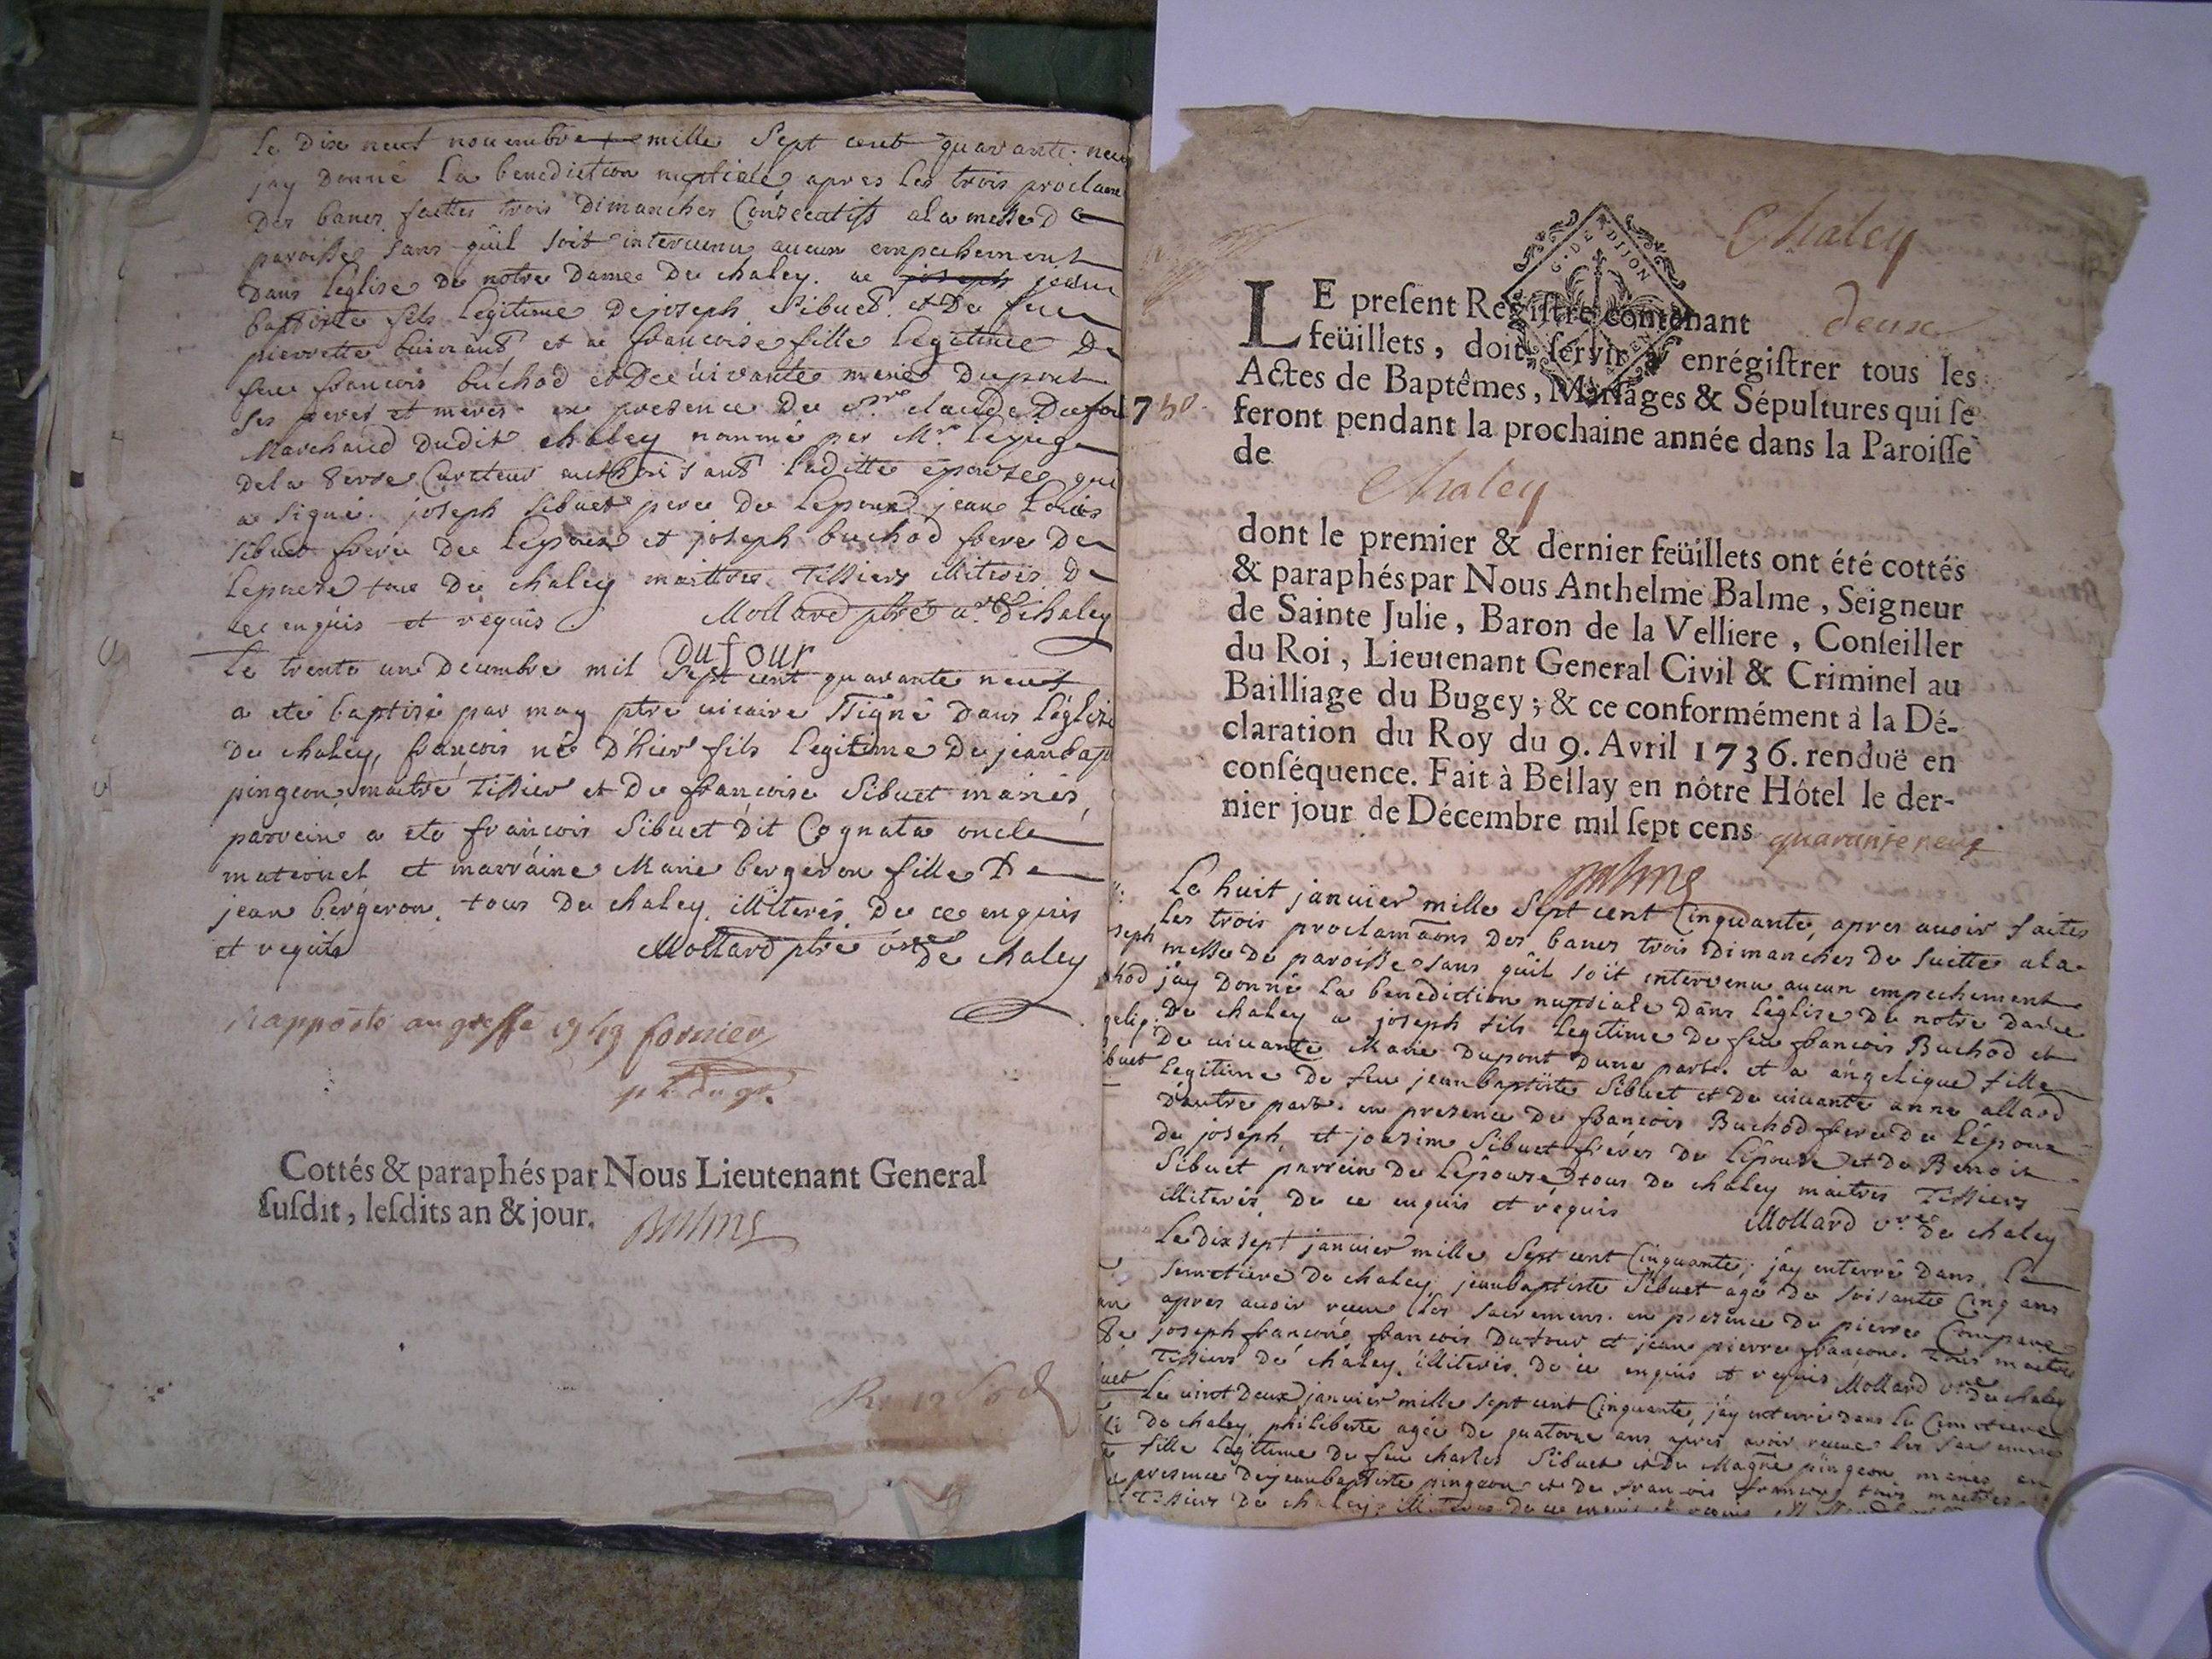 le dix neuf novembre mille sept cent quarante neuf
jay donné la benediction nuptiale apres les trois proclam
des bancs faittes trois dimanches consecutifs a la messe de
paroisse sans quil soit intervenu aucun empechement
dans leglise de notre dame de chaley. a joseph jean
baptiste fils legitime de joseph sibuet et de feue
pierrette et a francoise fille legitime de
feu francois buchod et de vivante marie dupont
ses peres et meres en presence de sr claude Dufour
Marchand dudit chaley nommé par Mr le juge
de la serre Curateur authorisant laditte epouse qui
a signé. joseph sibuet pere de lepoux jean Louis
sibuet frere de lepoux et joseph buchod frere de
lepouse tous de chaley maitres Tissiers illiterés de
ce enquis et requis Mollard ptre vre de chaley
Dufour
Le trente un decembre mil sept cent quarante neuf
a eté baptisé par moy ptre vicaire ssigné dans léglise
de chaley, francois né d'hier fils legitime de jean bap
pingeon maitre Tissier et de francoise Sibuet mariés,
parrein a eté francois Sibuet dit Cognata oncle
maternel et marraine Marie bergeron fille de
jean bergeron. tous de chaley illiterés de ce enquis
et requis Mollard ptre vre de chaley
Rapporté au greffe fornier
Cottés & paraphés par Nous Lieutenant General
susdit, lesdits an & jour. Balme
Chaley
G. DE DIJON
LE present Registre contenant deux
feüillets, doit servir à enrégistrer tous les
Actes de Baptêmes, Mariages & Sépultures qui se
feront pendant la prochaine année dans la Paroisse
de
Chaley
dont le premier & dernier feüillets ont été cottés
& paraphés par Nous Anthelme Balme, Seigneur
de Sainte Julie, Baron de la Velliere, Conseiller
du Roi, Lieutenant General Civil & Criminel au
Bailliage du Bugey; & ce conformément à la Dé-
claration du Roy du 9. Avril 1736. renduë en
conséquence. Fait à Bellay en nôtre Hôtel le der-
nier jour de Décembre mil sept cens quarante neuf
Balme
Le huit janvier mille sept cent Cinquante, apres avoir faites
les trois proclamaons des bancs trois dimanches de suitte a la
messe de paroisse sans quil soit intervenu aucun empechement
jay donné la benediction nuptiale dans léglise de notre dame
de chaley a joseph fils legitime de feu francois Buchod et
de vivante Marie Dupont dune part. et a angelique fille
legitime de feu jean baptiste Sibuet et de vivante anne allard
d'autre part. en presence de francois Buchod frere de lépoux
de joseph et josime Sibuet fréres de lépouse et de Benoit
Sibuet parrein de lépouse tous de chaley maitres Tissiers
illiterés de ce enquis et requis Mollard vre de chaley
Le dix sept janvier mille sept cent Cinquante, jay enterré dans le
semetiere de chaley jean baptiste Sibuet agé de soisante Cinq ans
apres avoir receu les sacremens. en presence de pierre Compare
joseph francon, francois Dufour et jean pierre francon. tous maitres
Tissiers de chaley illiterés de ce enquis et requis Mollard vre de chaley
Le vint deux janvier mille sept cent Cinquante, jay enterré dans le Cimetiere
de chaley, philiberte agée de quatorze ans apres avoir receue les sacremens
fille legitime de feu charles Sibuet et de pingeon mariés en
presence de jean baptiste pingeon et de francois francon tous maitres
Tissiers de chaley